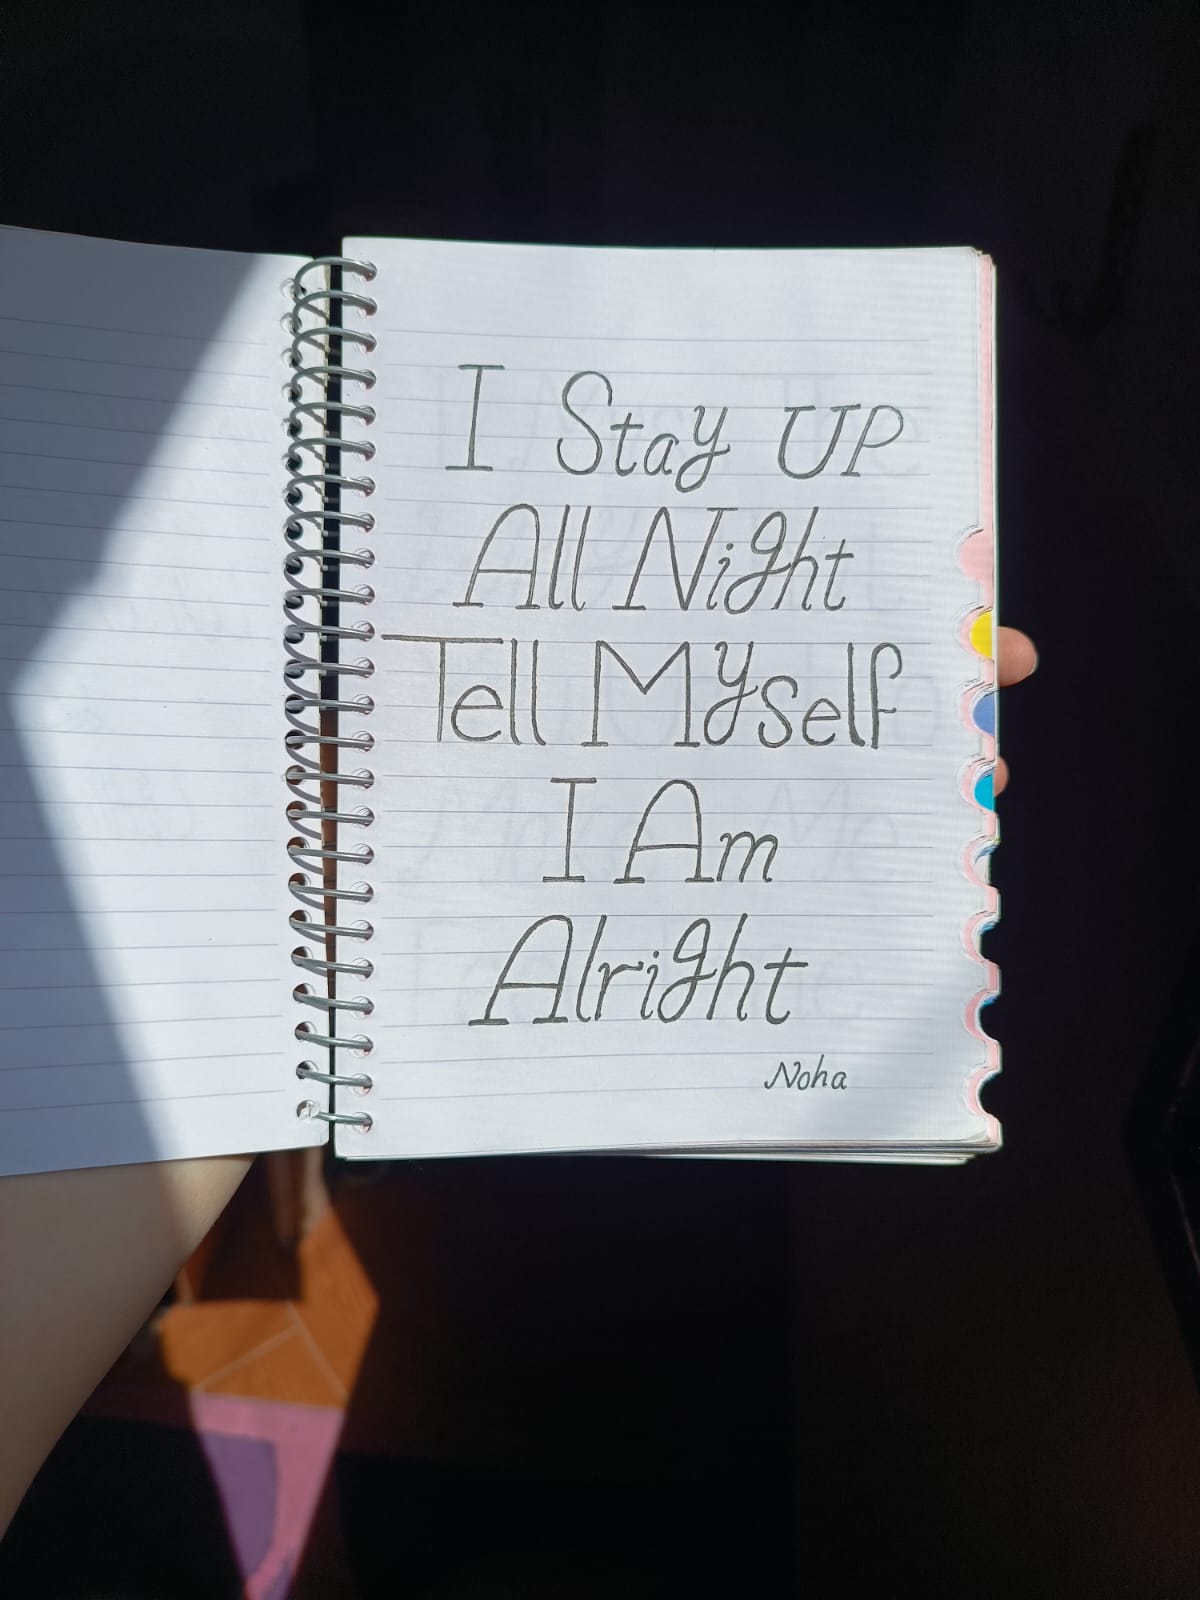 I Stay UP
All Night
Tell Myself
I Am
Alright
Noha